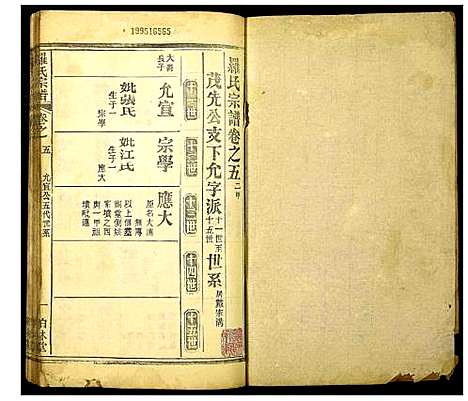 199516565
羅氏宗譜卷之五
茂先公支下允字派十一世至十五世世系
十一世
十二世
十三世
十四世
十五世
允宣
妣張氏
生子一
宗學
宗學
妣江氏
生子一
應大
應大
原名大
無傳
以上信墓
墳之四
與一甲
墳毗連
羅氏宗譜
卷之五
允宣公五代世系
一
柏林堂